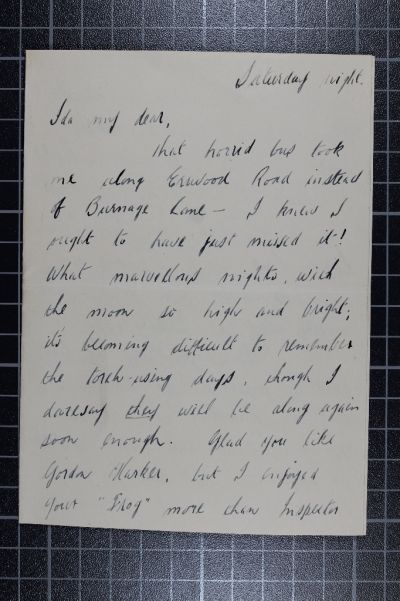 Saturday night.
Ida my dear,
that horrid bus took
me along Errwood Road instead
of Burnage Lane — I knew I
ought to have just missed it!
What marvellous nights, with
the moon so high and bright;
it's becoming difficult to remember
the torch-using days, though I
daresay they will be along again
soon enough. Glad you like
Gordon Harker, but I enjoyed
your "Frog" more than Inspector